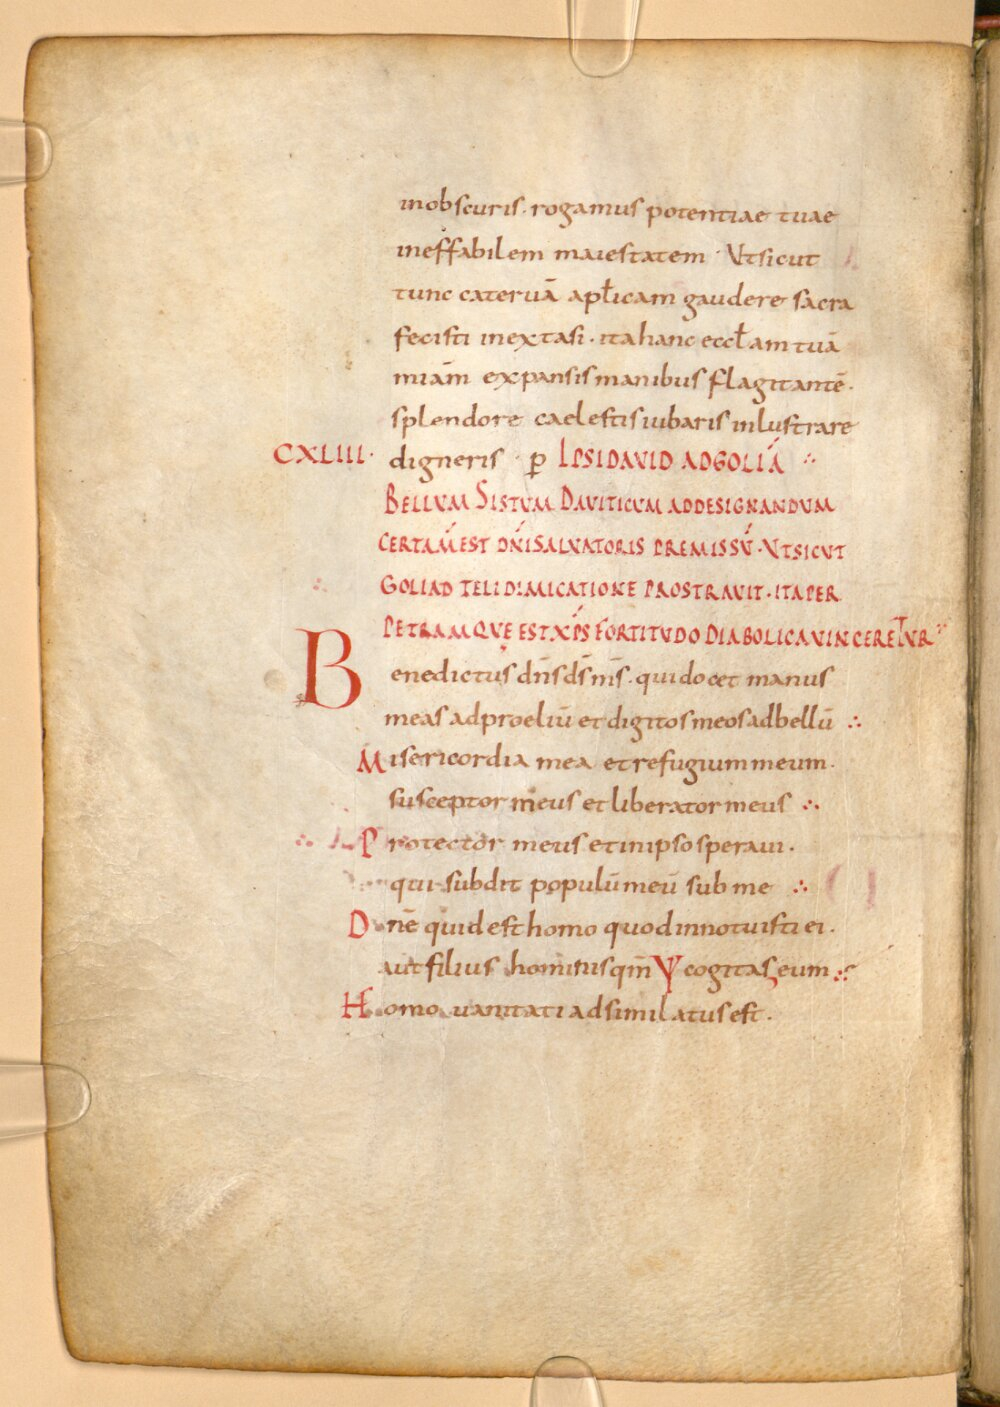 inobscuris · rogamus potentiae tuae
ineffabilem maiestatem · Utsicut
tunc cateruā apłicam gaudere sacra
fecisti inextasi · itahanc eccłam tuā
miām expansis manibus flagitantē ·
splendore caelestis iubaris inlustrare
CXLIII · digneris · ꝑ IPSI DAVID AD GOLIĀ ∴
BELLUM SISTUM DAUITICUM ADDESIGNANDUM
CERTAM̄EST DN̄I SALUATORIS PREMISSŪ · UTSICUT
GOLIAD TELI DIMICATIONE PROSTRAUIT · ITA PER
PETRAM QUE EST XP̄S FORTITUDO DIABOLICA UINCERETUR ∴
Benedictus dn̄s ds̄ ms̄ · qui docet manus
meas adproeliū et digitos meos adbellū ∴
Misericordia mea et refugium meum ·
susceptor meus et liberator meus ∴
Protector meus et inipso speraui ·
qui subdit populū meū sub me ∴
Dn̄e quid est homo quod innotuisti ei ·
aut filius hominis qm̄ cogitas eum ∴
Homo uanitati adsimilatus est ·